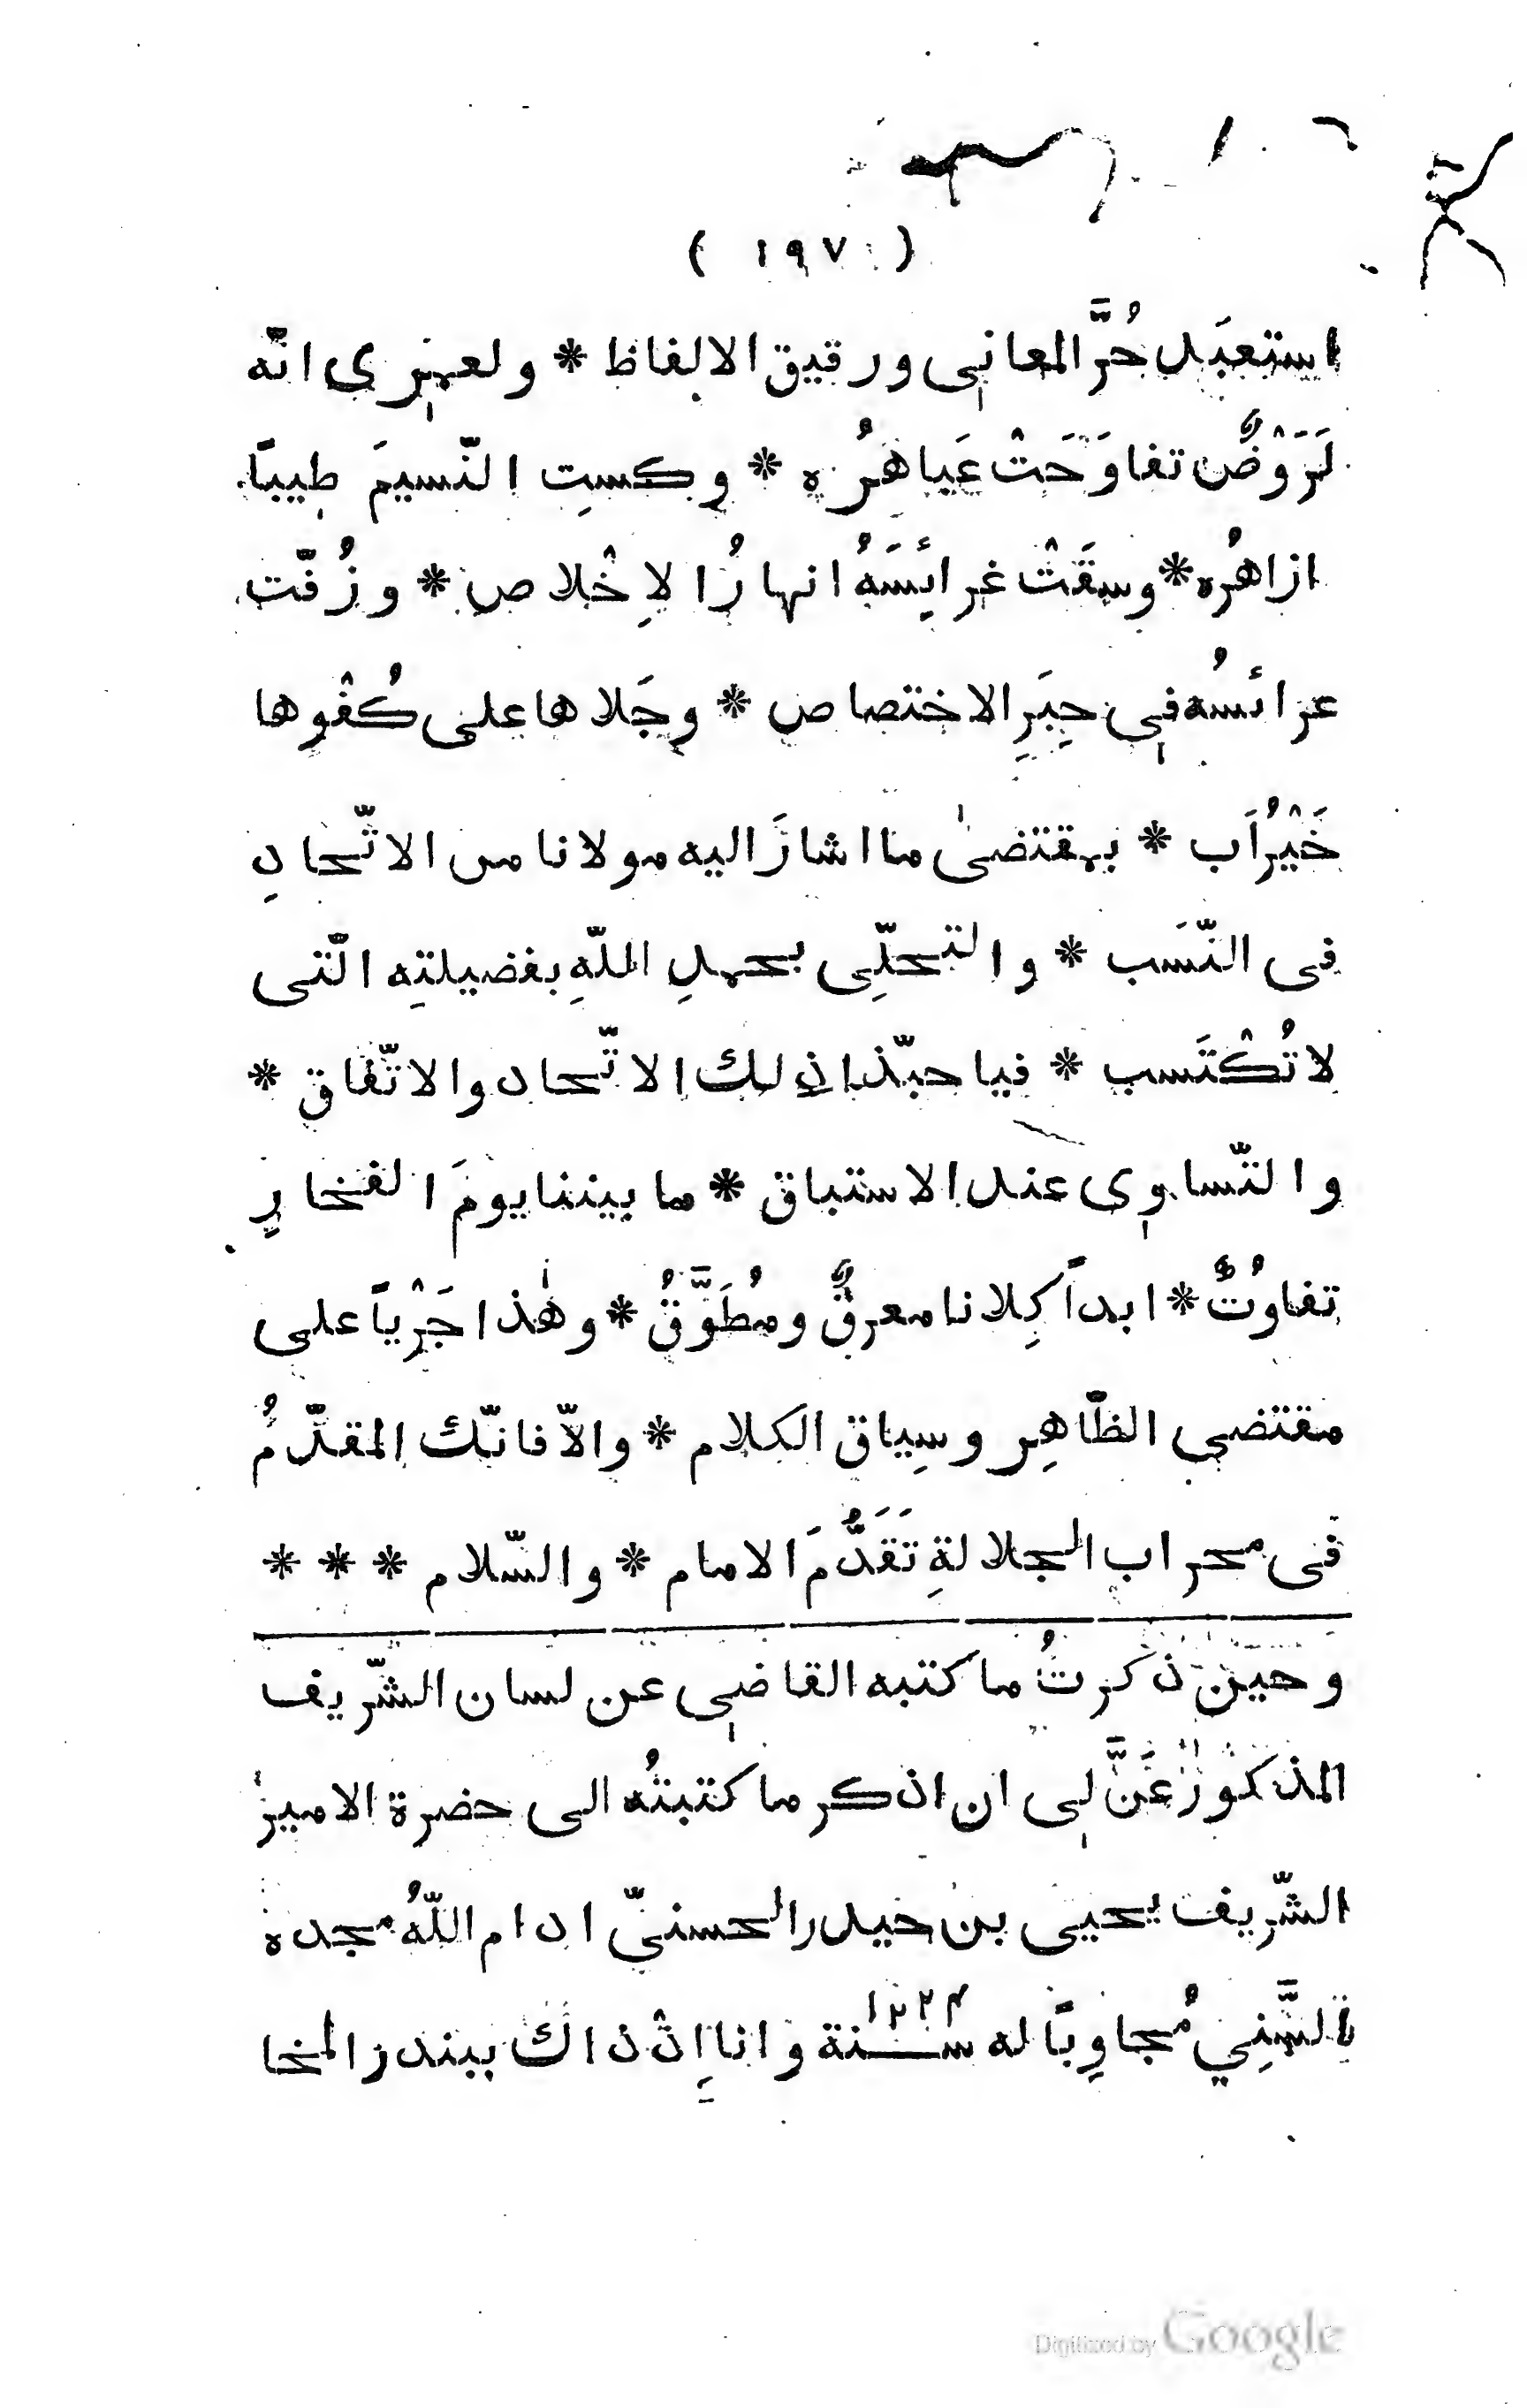 ( ١٩٧ )
استعبَد حُرَّ المعاني ورقيق الالفاظ * ولعمري انّه
لَرَوْضٌ تفاوَحَتْ عَباهِرُه * وكستِ النّسيمَ طيباً
ازاهُره * وسقَتْ غرائسَهُ انهارُ الاِخْلاص * وزُفّت
عرائسُه في حِبَرِ الاختصاص * وجَلاها على كُفْوها
خَيْرُ اَب * بمقتضىٰ ما اشارَ اليه مولانا من الاتّحادِ
في النّسَب * والتحلّي بحمدِ اللّهِ بفضيلتِه الّتي
لا تُكْتَسب * فيا حبّذا ذلك الاتّحاد والاتّفاق *
والتّساوي عند الاستباق * ما بيننا يومَ الفخارِ
تفاوُتٌ * ابداً كِلانا معرقٌ ومُطَوَّقُ * وهٰذا جَرْياً على
مقتضى الظّاهِر وسِياق الكلام * والاّ فانّك المقدّمُ
في محراب الجلالةِ تَقَدُّمَ الامام * والسّلام * * *
وحين ذكرتُ ما كتبه القاضي عن لسان الشّريف
المذكور عَنَّ لي ان اذكر ما كتبتُه الى حضرة الامير
الشّريف يحيى بن حيدر الحسنيّ ادام اللّهُ مجده
السَّنِي مُجاوِباً له سنة ١٢٢٤ وانا اِذْ ذاك ببندر المخا
Digitized by Google